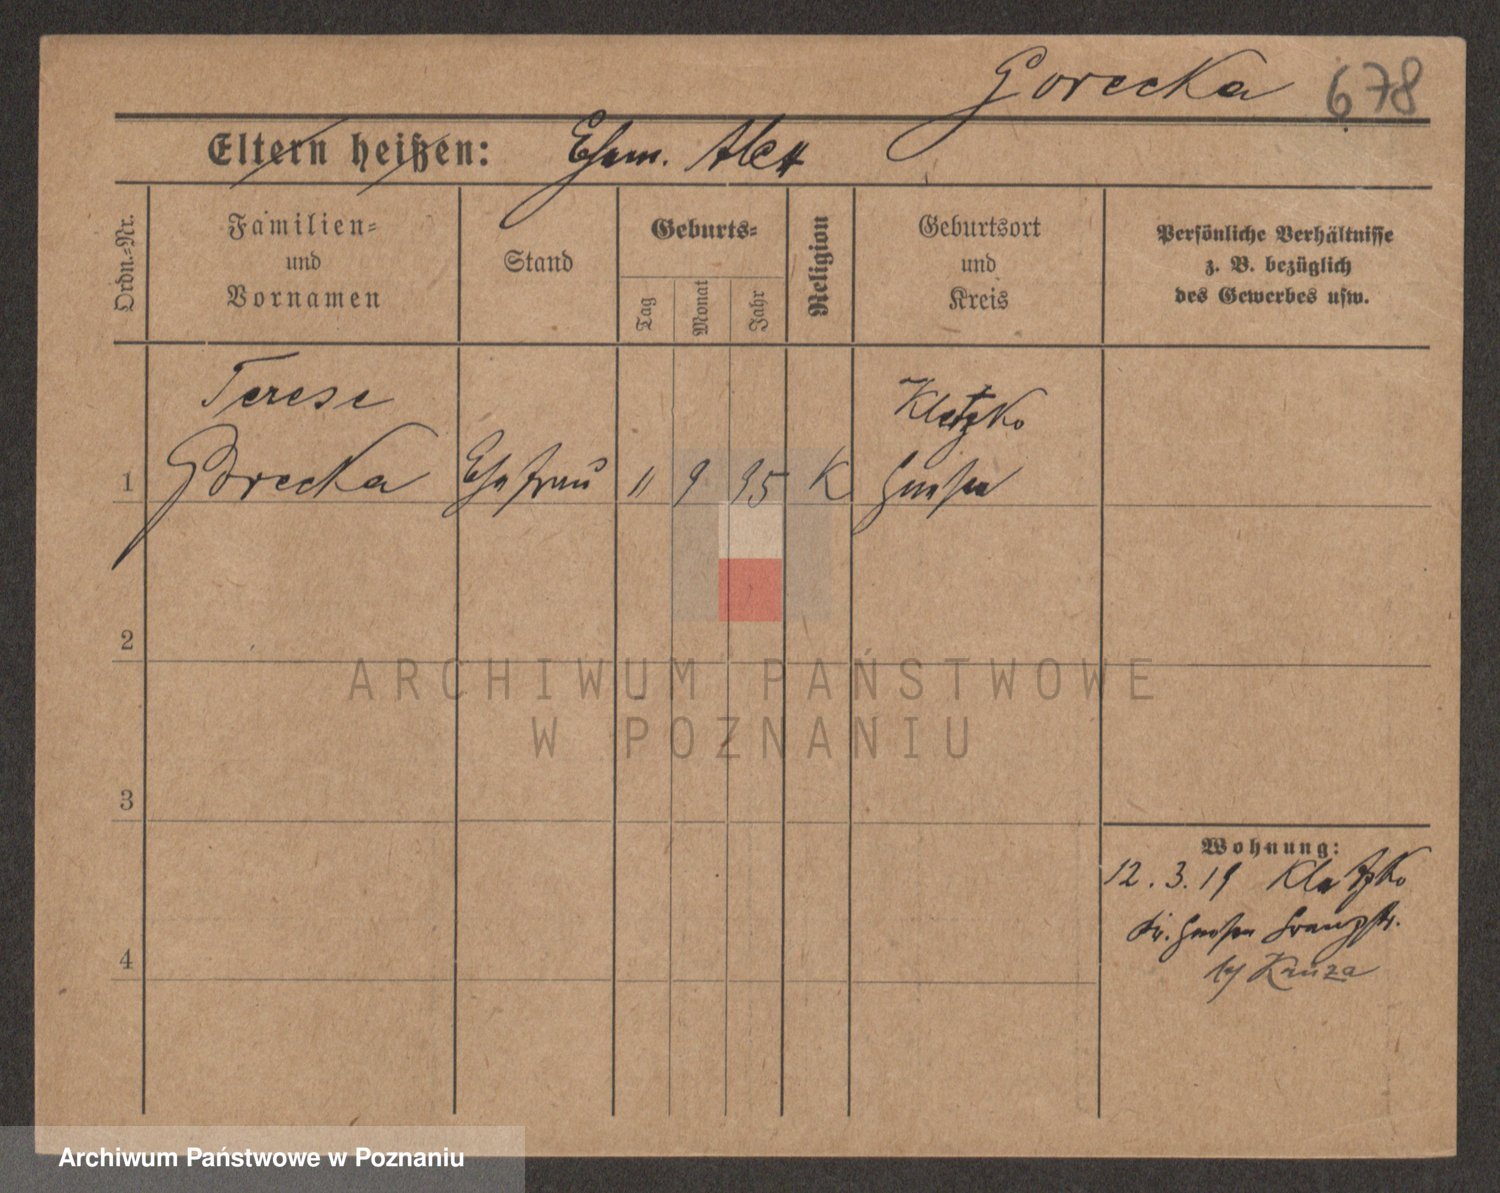 Gorecka 678
Eltern heißen: Ehem. Alex
Ordn.=Nr.
Familien=
und
Vornamen
Stand
Geburts=
Tag
Monat
Jahr
Religion
Geburtsort
und
Kreis
Persönliche Verhältnisse
z. B. bezüglich
des Gewerbes usw.
Terese Kletzko
1 Gorecka Ehefrau 11 9 95 K Gnesen
2
ARCHIWUM PAŃSTWOWE
W POZNANIU
3
Wohnung:
12.3.19 Kletzko
Kr. Gnesen
4
Archiwum Państwowe w Poznaniu